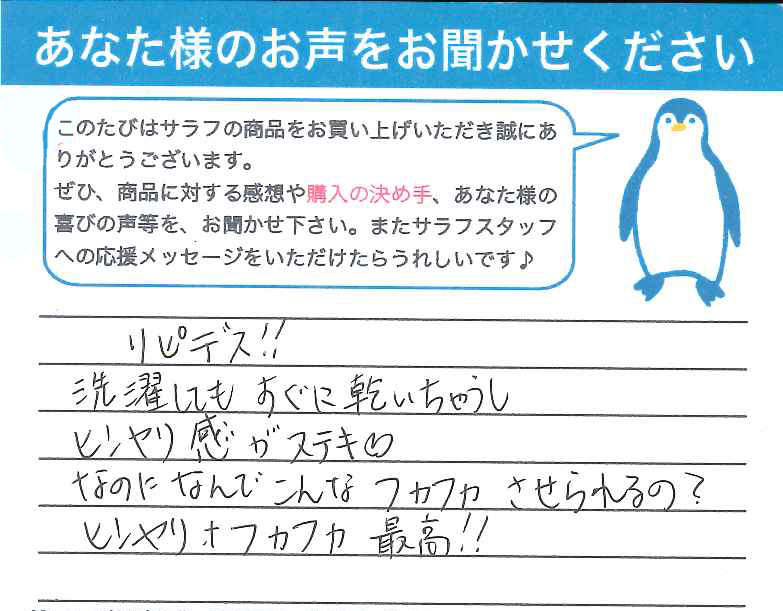 あなた様のお声をお聞かせください
このたびはサラフの商品をお買い上げいただき誠にあ
りがとうございます。
ぜひ、商品に対する感想や購入の決め手、あなた様の
喜びの声等を、お聞かせ下さい。またサラフスタッフ
への応援メッセージをいただけたらうれしいです♪
リピデス!!
洗濯しても すぐに乾いちゃうし
ヒンヤリ感がステキ♡
なのになんでこんなフカフカ させられるの?
ヒンヤリ+フカフカ 最高!!